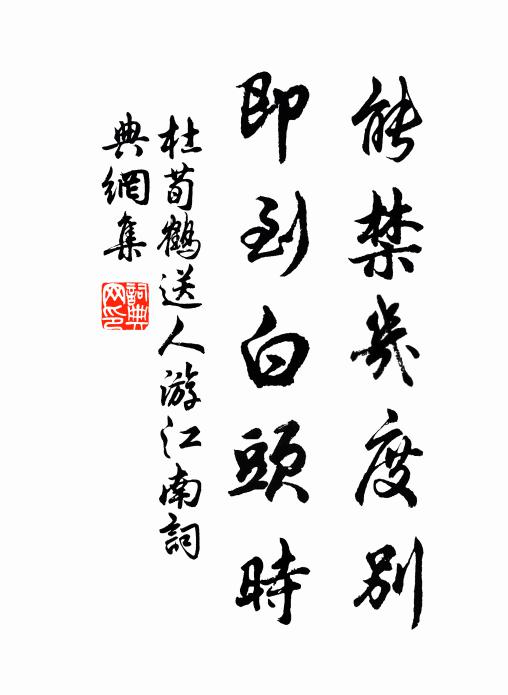 能禁幾度別
即到白頭時
杜荀鶴送人游江南詞
典網集
詞典網印